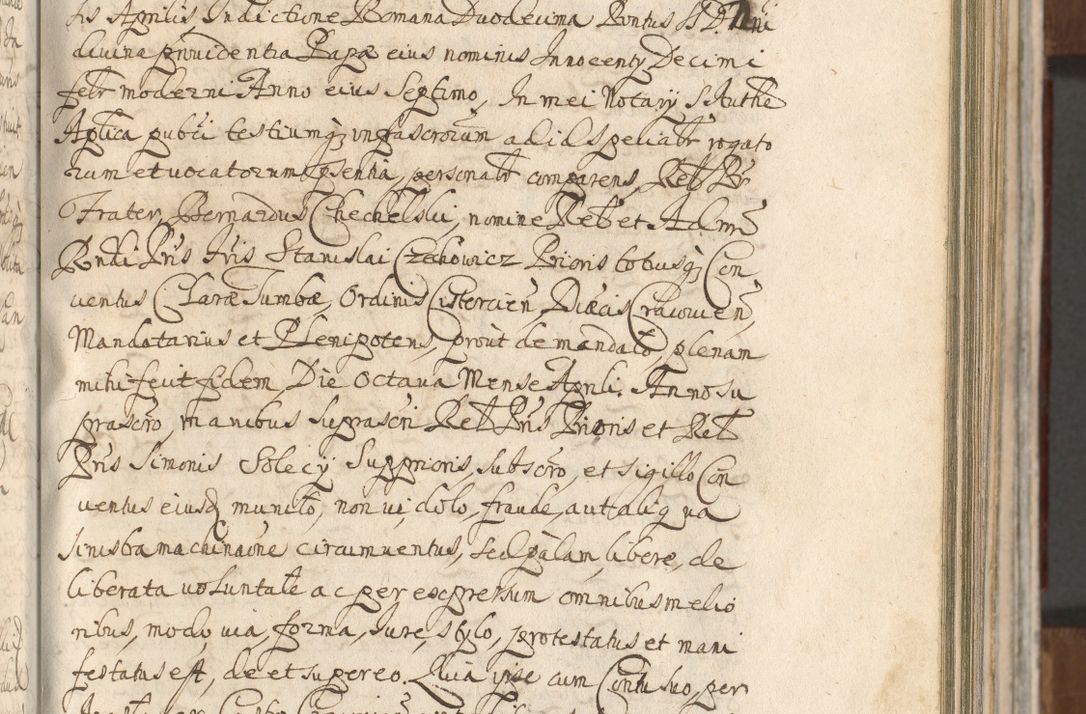 tis Aprilis Indictione Romana Duodecima Pontus SS D. Dni
divina providentia Papæ eius nominis Innocenty Decimi
felr moderni Anno eius Septimo, In mei Notary S. Authe
Aplica publi testiumq infrascrorum ad id specialr rogato
rum et vocatorum psentia, personalr comparens, Relb Pr
Frater Bernardus Chechelski, nomine Relb et Adm
Rondi Pris Fris Stanislai Czechowicz Prioris totiusq Con
ventus Claræ Tumbæ, Ordinis Cistercien, Diæcis Cracovien,
Mandatarius et Plenipotens, prout de mandato, plenam
mihi fecit fidem, Die Octava Mense Aprili. Anno su
prascro, manibus suprascri Relb Pris Prioris et Relb
Pris Simonis Solecy Supprioris, subscro, et sigillo Con
ventus eiusd munito, non vi, dolo, fraude, aut aliqua
sinistra machinaone circumventus, sed palam, libere, de
liberata voluntate ac per expressum omnibus melio
ribus, modo, via, forma, Iure, stylo, protestatus et mani
festatus est, de et super eo. Quia ipse cum Contu suo, per